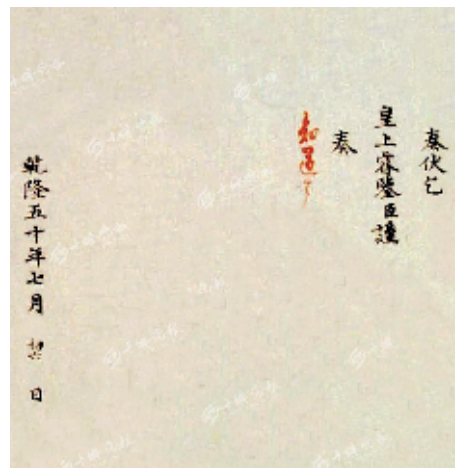 奏伏乞
皇上睿鑒臣謹
奏
知道了
乾隆五十年七月 日